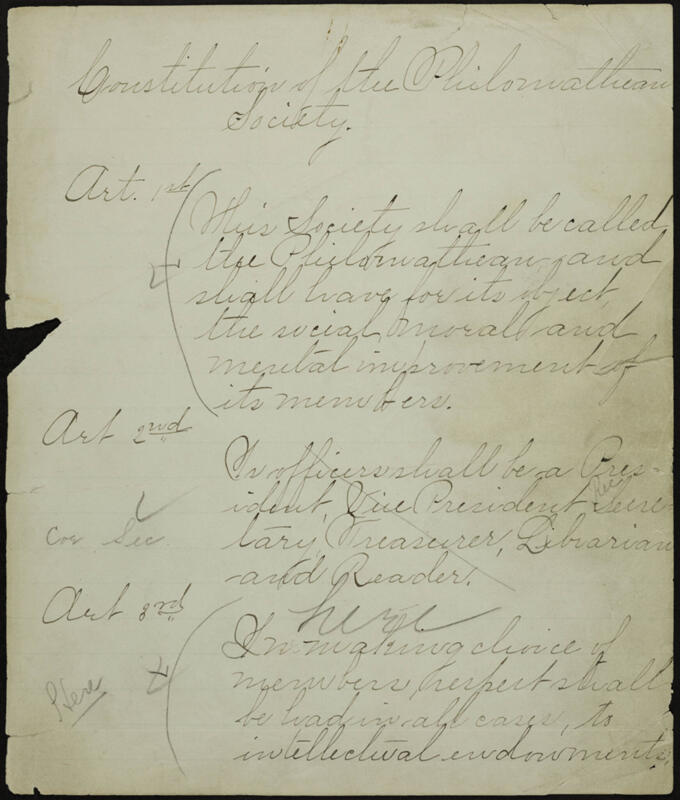 Constitution of the Philomathean
Society.
Art. 1st
This Society shall be called
the Philomathean, and
shall have for its object,
the social, moral and
mental improvement of
its members.
Art 2nd
Is officers shall be a Pres-
ident, Vice President Rec Secre-
tary, Treasurer, Librarian
and Reader.
Cor Sec
here
Art 3rd
In making choice of
members, respect shall
be had in all cases, to
intellectual endowments,
Here